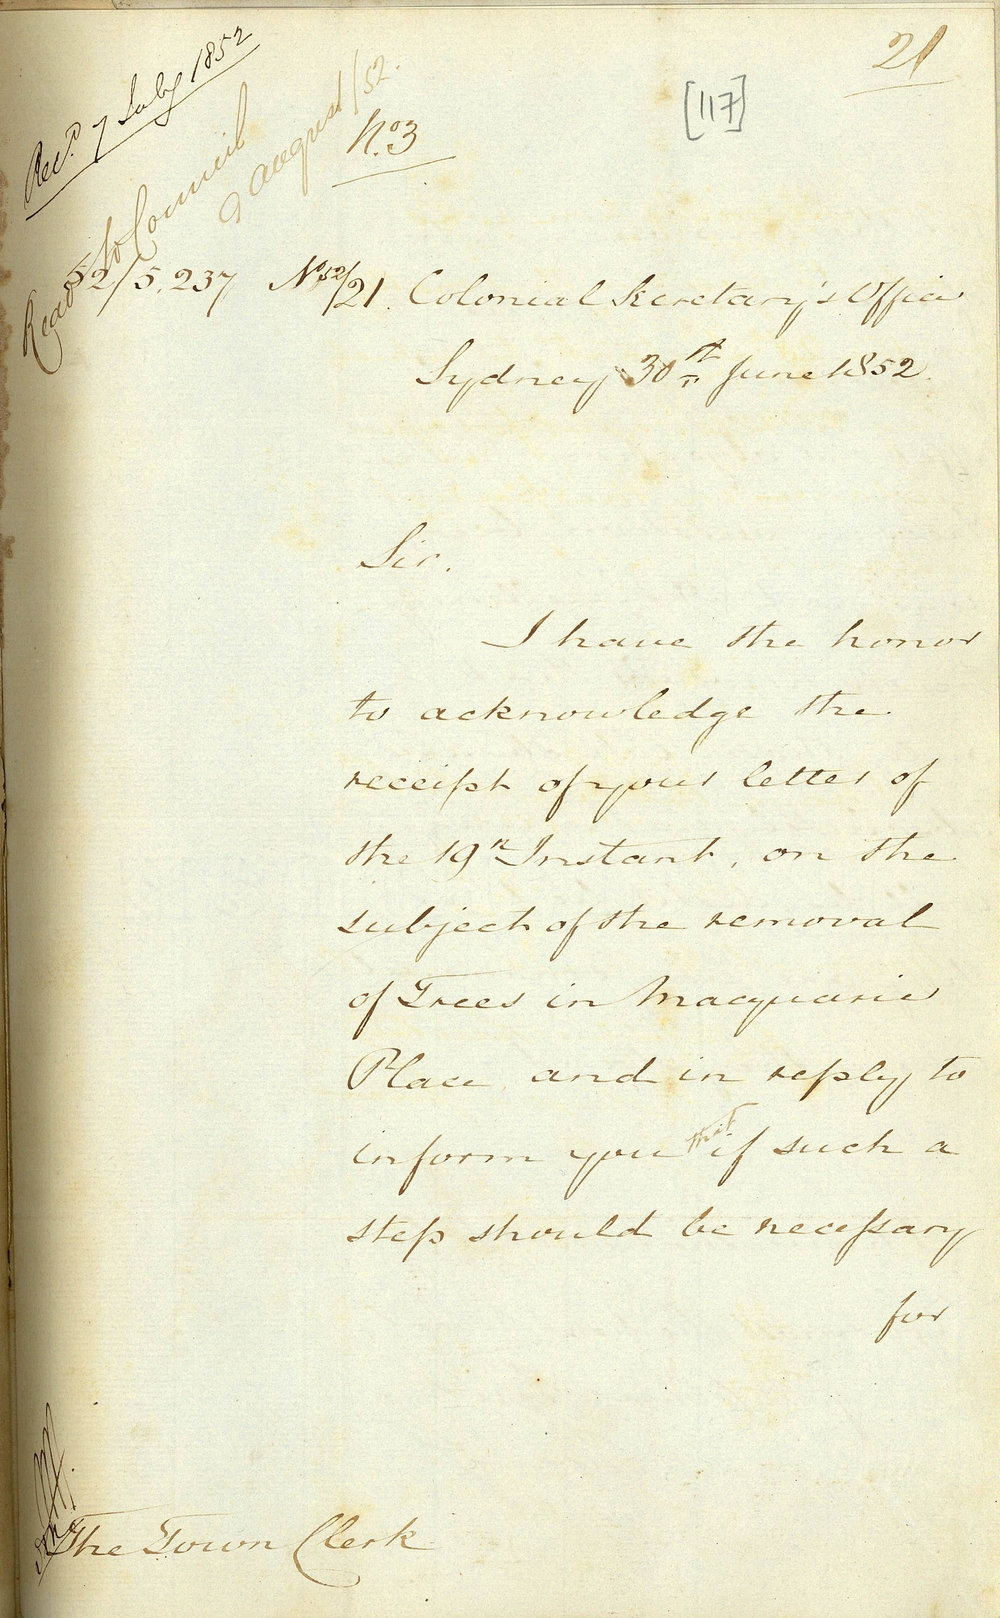 21
[117]
Recd. 7 July 1852
Read to Council
9 August /52.
No. 3
52/5,237 No 52/21. Colonial Secretary's Office
Sydney 30th June 1852.
Sir.
I have the honor
to acknowledge the
receipt of your letter of
the 19th Instant, on the
subject of the removal
of Trees in Macquarie
Place and in reply to
inform you that if such a
step should be necessary
for
The Town Clerk